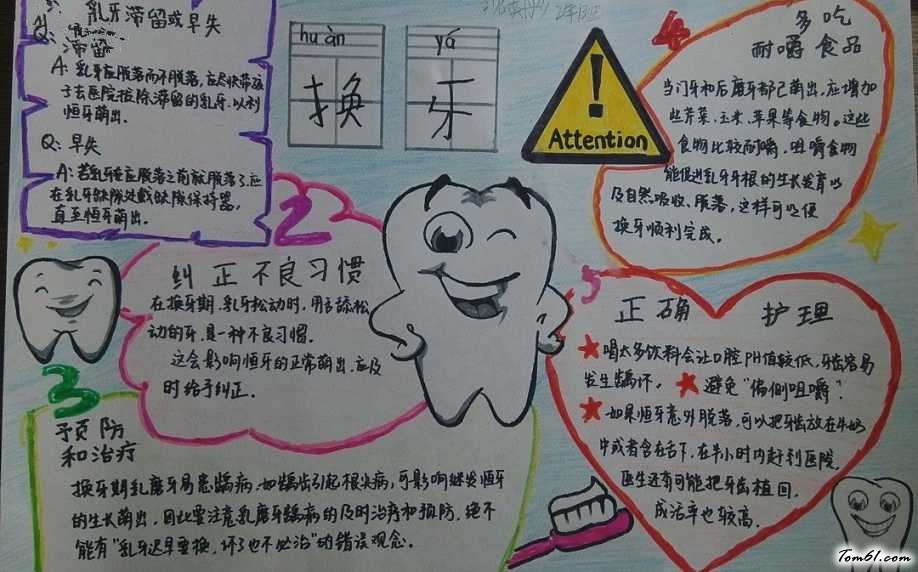 乳牙滞留或早失
Q: 滞留
A: 乳牙应脱落而不脱落,应尽快带孩
子去医院拔除滞留的乳牙,以利
恒牙萌出.
Q: 早失
A: 若乳牙在应脱落之前就脱落了,应
在乳牙缺隙处戴缺隙保持器,
直至恒牙萌出.
huàn yá
换 牙
Attention
4
多吃
耐嚼食品
当门牙和后磨牙都已萌出,应增加
些芹菜、玉米、苹果等食物。这些
食物比较耐嚼,咀嚼食物
能促进乳牙牙根的生长发育以
及自然吸收、脱落,这样可以便
换牙顺利完成。
2
纠正不良习惯
在换牙期,乳牙松动时,用舌舔松
动的牙,是一种不良习惯.
这会影响恒牙的正常萌出,应及
时给予纠正.
3
预防
和治疗
换牙期乳磨牙易患龋病,如龋齿引起根尖病,可影响继发恒牙
的生长萌出,因此要注意乳磨牙龋病的及时治疗和预防,绝不
能有“乳牙迟早要换,坏了也不必治”的错误观念.
5
正确 护理
喝太多饮料会让口腔PH值较低,牙齿容易
发生龋坏。 避免“偏侧咀嚼”
如果恒牙意外脱落,可以把牙齿放在牛奶
中或者含在舌下,在半小时内赶到医院,
医生还有可能把牙齿植回.
成活率也较高.
Tom61.com